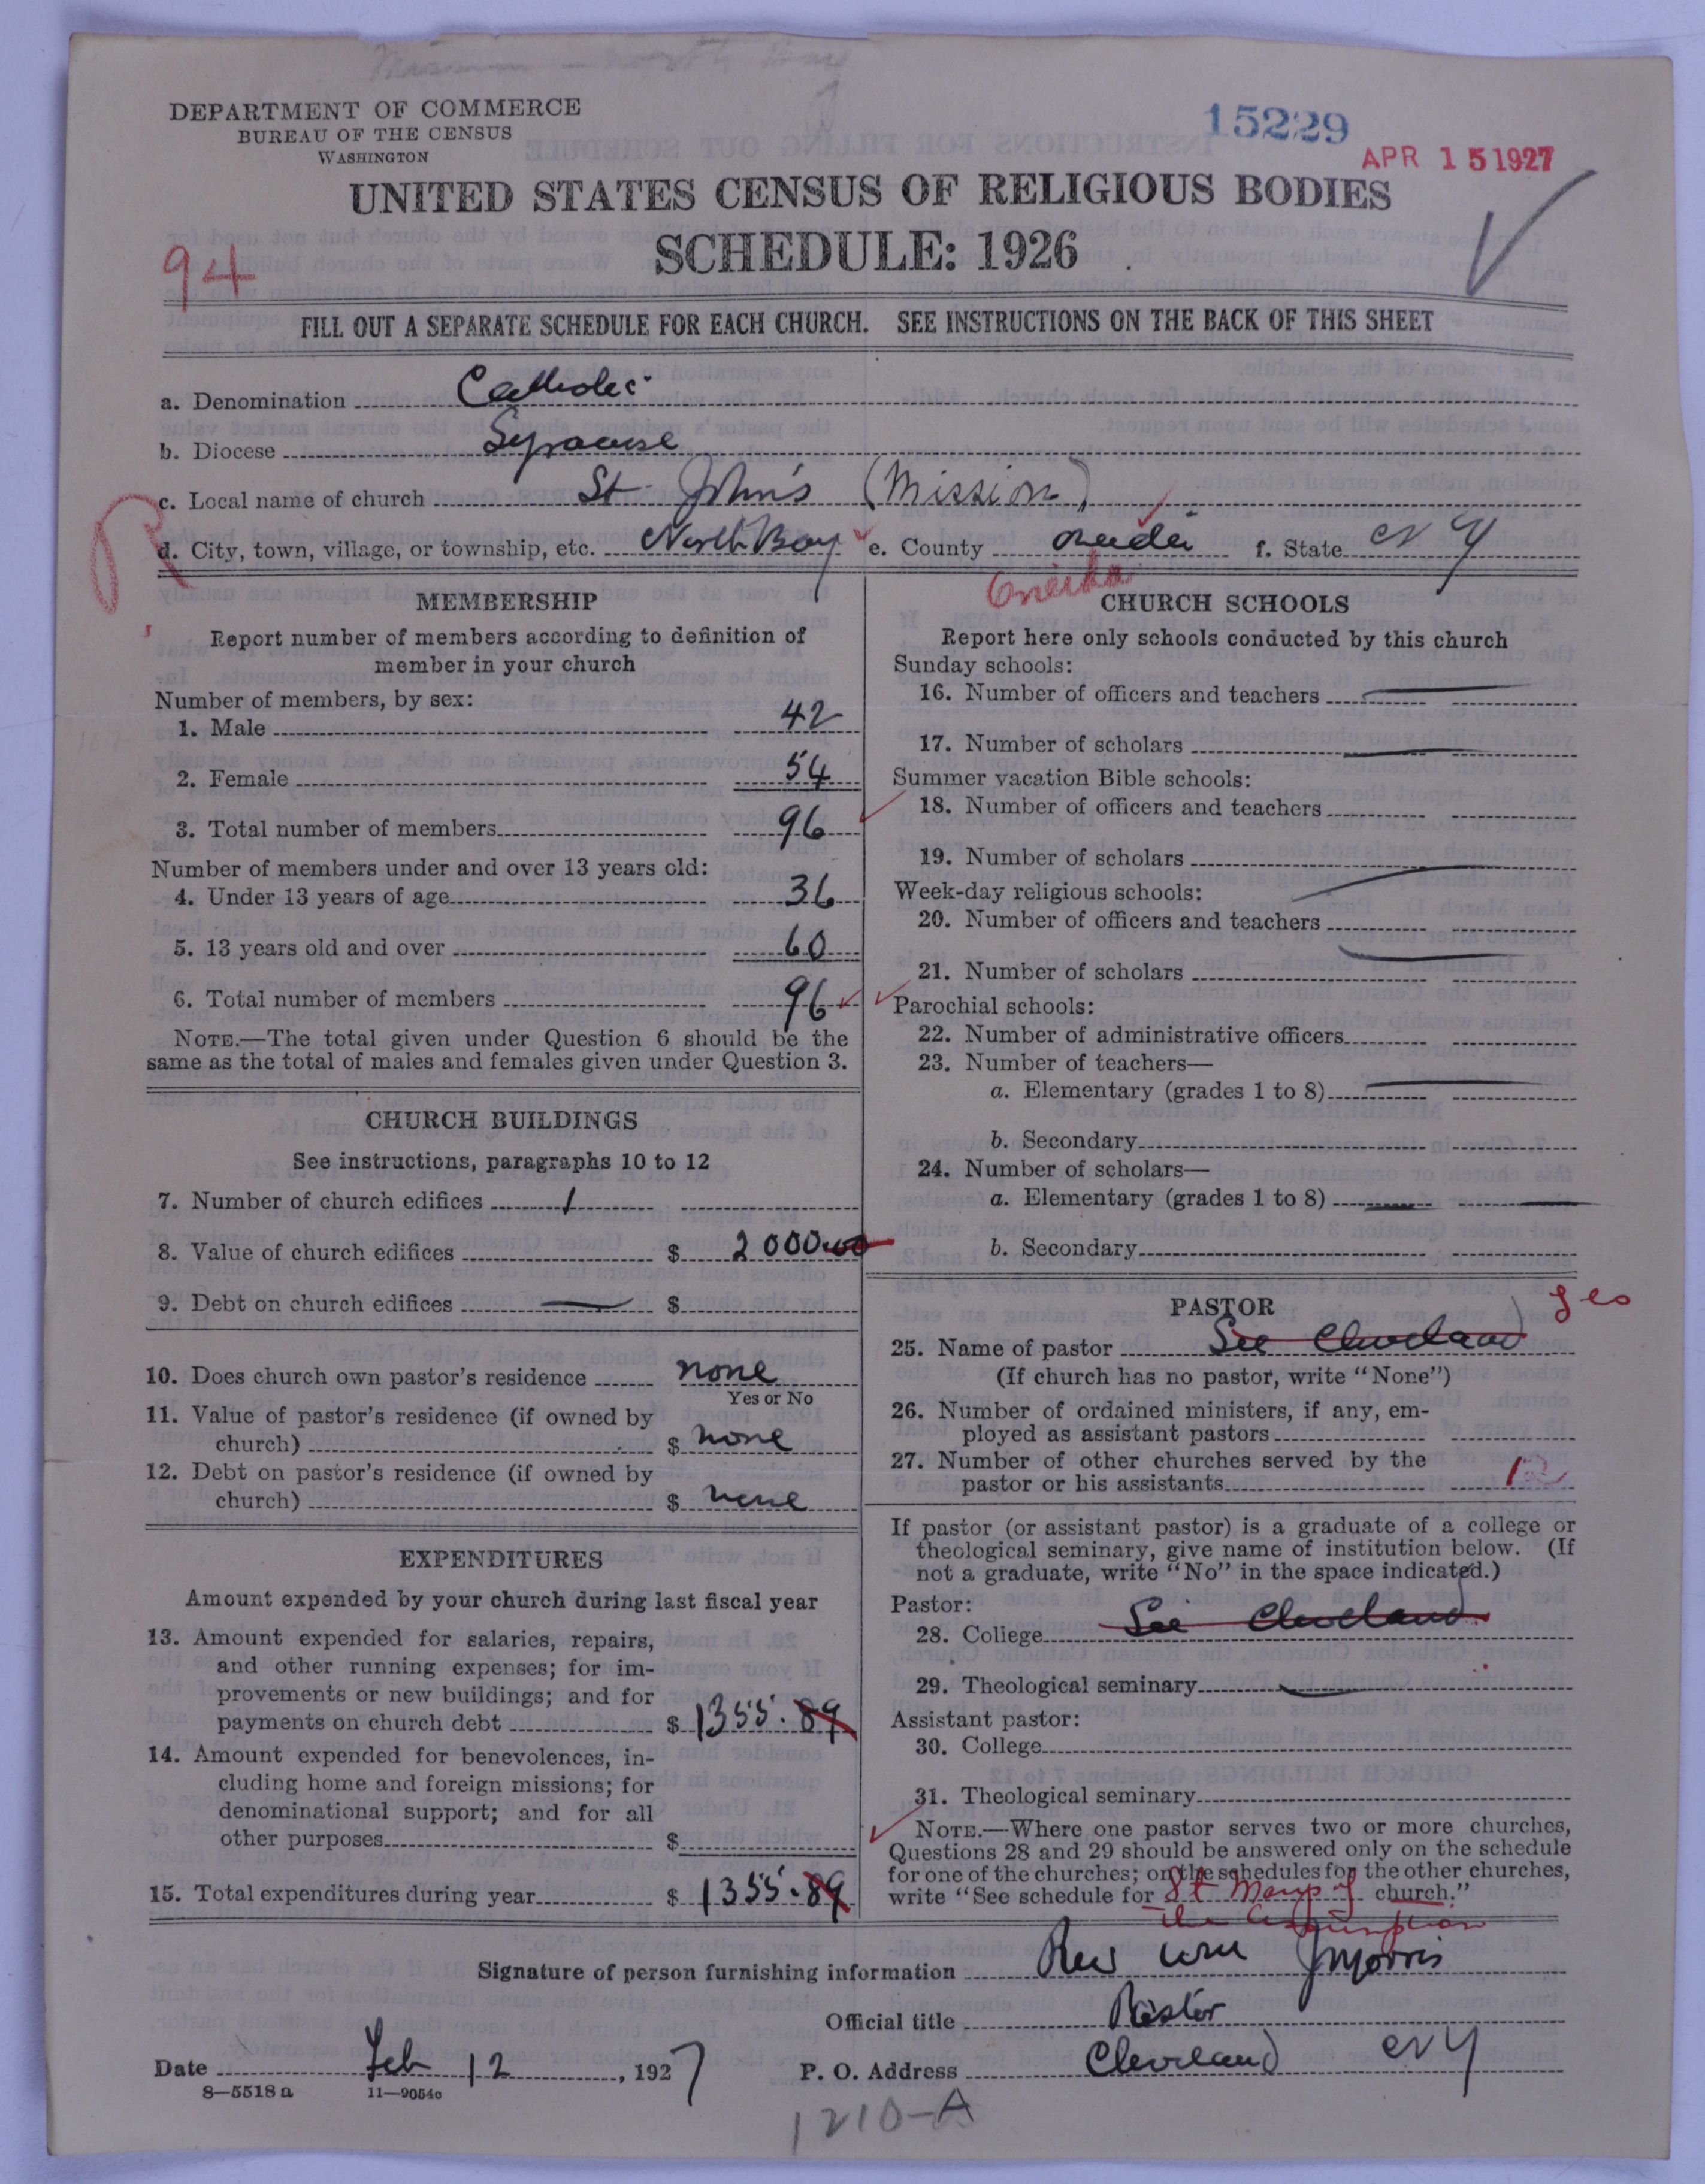 DEPARTMENT OF COMMERCE
BUREAU OF THE CENSUS
WASHINGTON
15229
APR 15 1927
UNITED STATES CENSUS OF RELIGIOUS BODIES
SCHEDULE: 1926
94
FILL OUT A SEPARATE SCHEDULE FOR EACH CHURCH. SEE INSTRUCTIONS ON THE BACK OF THIS SHEET
a. Denomination Catholic
b. Diocese Syracuse
c. Local name of church St John's (Mission)
d. City, town, village, or township, etc. North Bay e. County Oneida f. State N Y
Oneida
MEMBERSHIP
Report number of members according to definition of
member in your church
Number of members, by sex:
1. Male 42
2. Female 54
3. Total number of members 96
Number of members under and over 13 years old:
4. Under 13 years of age 36
5. 13 years old and over 60
6. Total number of members 96
NOTE.—The total given under Question 6 should be the
same as the total of males and females given under Question 3.
CHURCH BUILDINGS
See instructions, paragraphs 10 to 12
7. Number of church edifices 1
8. Value of church edifices $ 2000.00
9. Debt on church edifices — $
10. Does church own pastor's residence none
Yes or No
11. Value of pastor's residence (if owned by
church) $ none
12. Debt on pastor's residence (if owned by
church) $ none
EXPENDITURES
Amount expended by your church during last fiscal year
13. Amount expended for salaries, repairs,
and other running expenses; for im-
provements or new buildings; and for
payments on church debt $ 1355.89
14. Amount expended for benevolences, in-
cluding home and foreign missions; for
denominational support; and for all
other purposes $
15. Total expenditures during year $ 1355.89
CHURCH SCHOOLS
Report here only schools conducted by this church
Sunday schools:
16. Number of officers and teachers —
17. Number of scholars —
Summer vacation Bible schools:
18. Number of officers and teachers
19. Number of scholars —
Week-day religious schools:
20. Number of officers and teachers
21. Number of scholars —
Parochial schools:
22. Number of administrative officers
23. Number of teachers—
a. Elementary (grades 1 to 8) —
b. Secondary
24. Number of scholars—
a. Elementary (grades 1 to 8) — —
b. Secondary
PASTOR
yes
25. Name of pastor See Cleveland
(If church has no pastor, write "None")
26. Number of ordained ministers, if any, em-
ployed as assistant pastors
27. Number of other churches served by the
pastor or his assistants
If pastor (or assistant pastor) is a graduate of a college or
theological seminary, give name of institution below. (If
not a graduate, write "No" in the space indicated.)
Pastor:
28. College See Cleveland
29. Theological seminary —
Assistant pastor:
30. College
31. Theological seminary
NOTE.—Where one pastor serves two or more churches,
Questions 28 and 29 should be answered only on the schedule
for one of the churches; on the schedules for the other churches,
write "See schedule for St Marys of church."
the Assumption
Signature of person furnishing information Rev Wm J Morris
Official title Pastor
Date Feb 12, 1927 P. O. Address Cleveland N Y
8—5518 a 11—9054c
1210-A